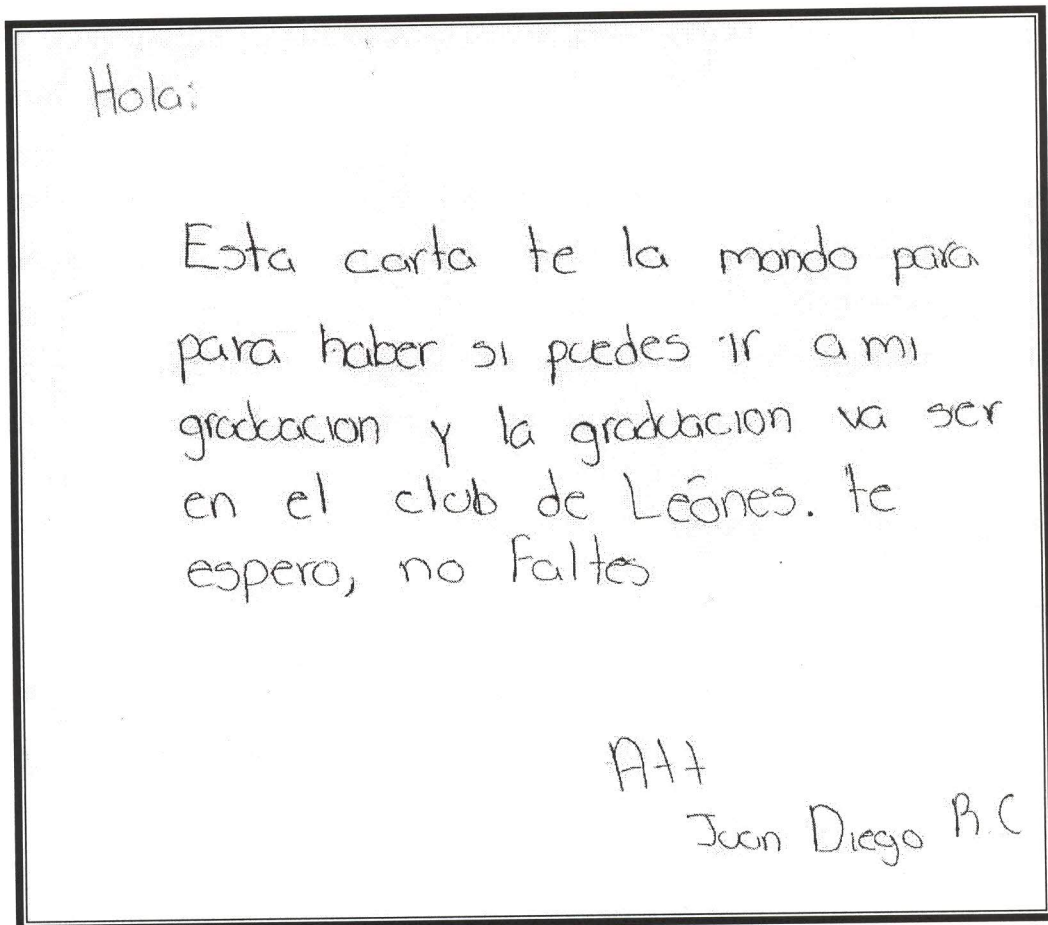 Hola:
Esta carta te la mando para
para haber si puedes ir a mi
graduacion y la graduacion va ser
en el club de Leónes. te
espero, no Faltes
Att
Juan Diego R.C